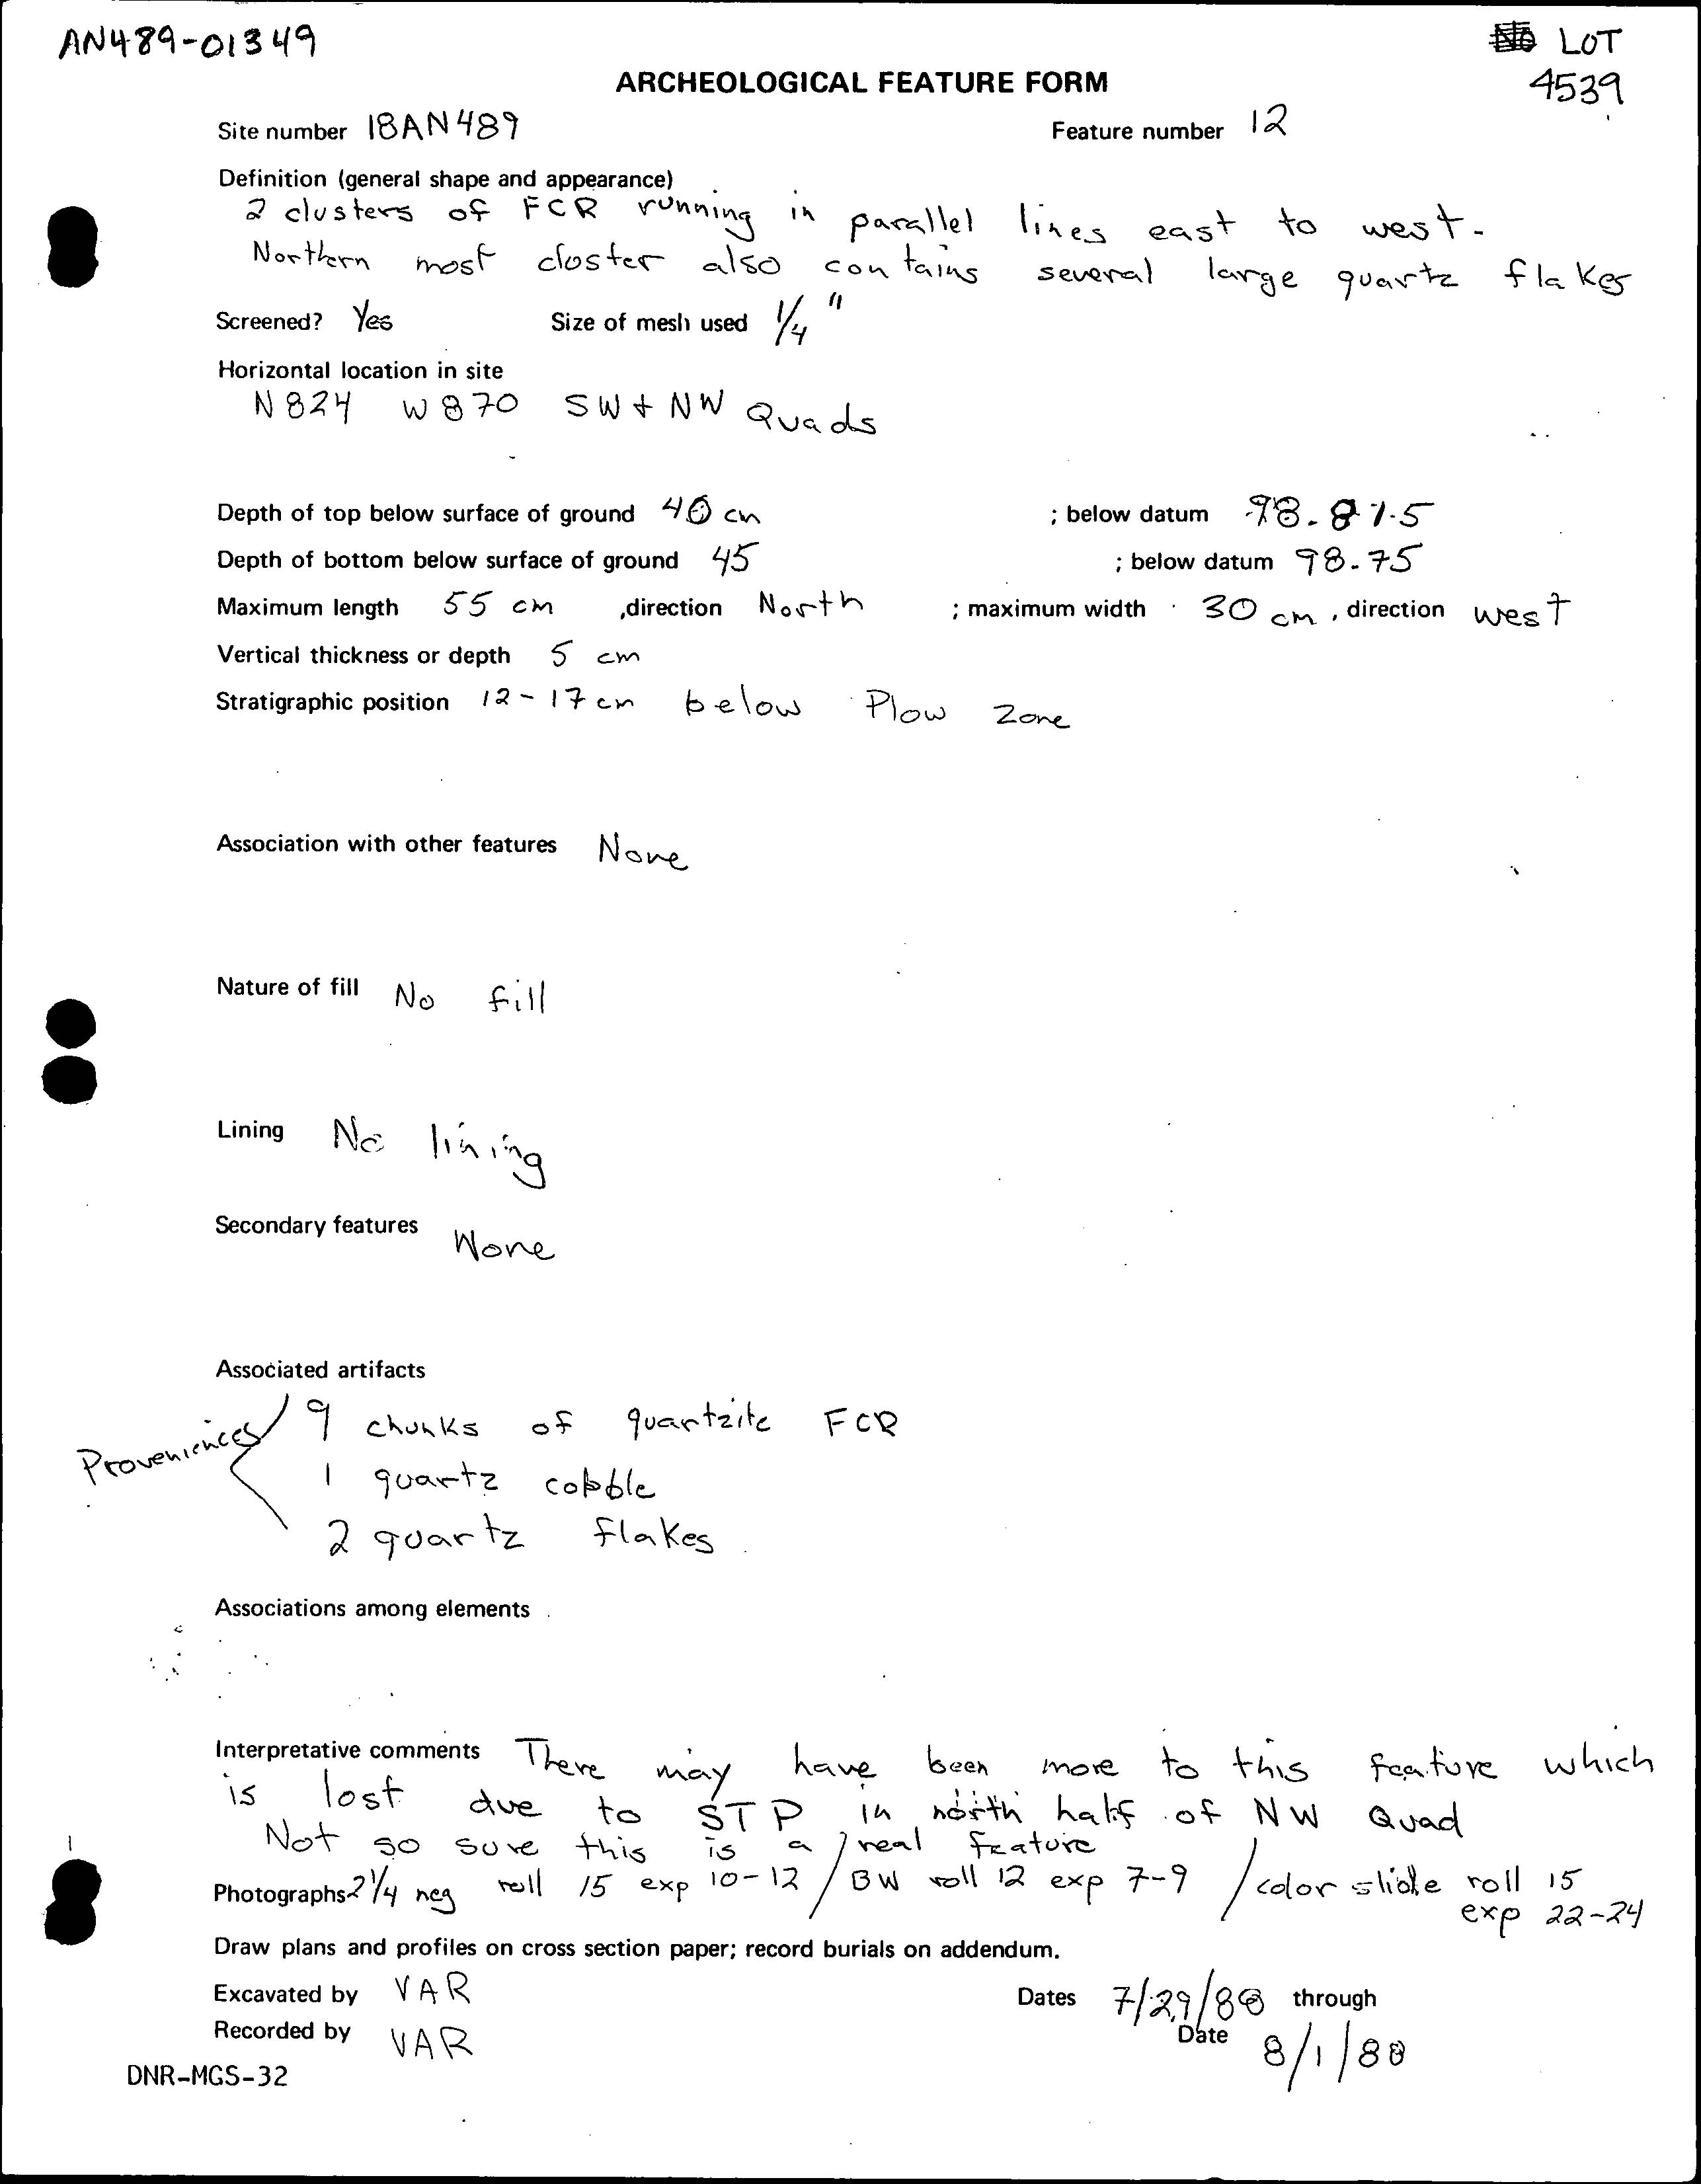 AN489-01349
LOT
ARCHEOLOGICAL FEATURE FORM
4539
Site number 18AN489 Feature number 12
Definition (general shape and appearance)
2 clusters of FCR running in parallel lines east to west.
Northern most cluster also contains several large quartz flakes
Screened? Yes Size of mesh used 1/4"
Horizontal location in site
N824 W870 SW + NW Quads
Depth of top below surface of ground 40 cm ; below datum 98.815
Depth of bottom below surface of ground 45 ; below datum 98.75
Maximum length 55 cm ,direction North ; maximum width 30 cm , direction west
Vertical thickness or depth 5 cm
Stratigraphic position 12-17 cm below Plow Zone
Association with other features None
Nature of fill No fill
Lining No lining
Secondary features None
Associated artifacts
Proveniences 9 chunks of quartzite FCR
1 quartz cobble
2 quartz flakes
Associations among elements
Interpretative comments There may have been more to this feature which
is lost due to STP in north half of NW Quad
Not so sure this is a real feature
Photographs 2 1/4 neg roll 15 exp 10-12 / BW roll 12 exp 7-9 / color slide roll 15
exp 22-24
Draw plans and profiles on cross section paper; record burials on addendum.
Excavated by VAR Dates 7/29/88 through
Recorded by VAR Date 8/1/88
DNR-MGS-32